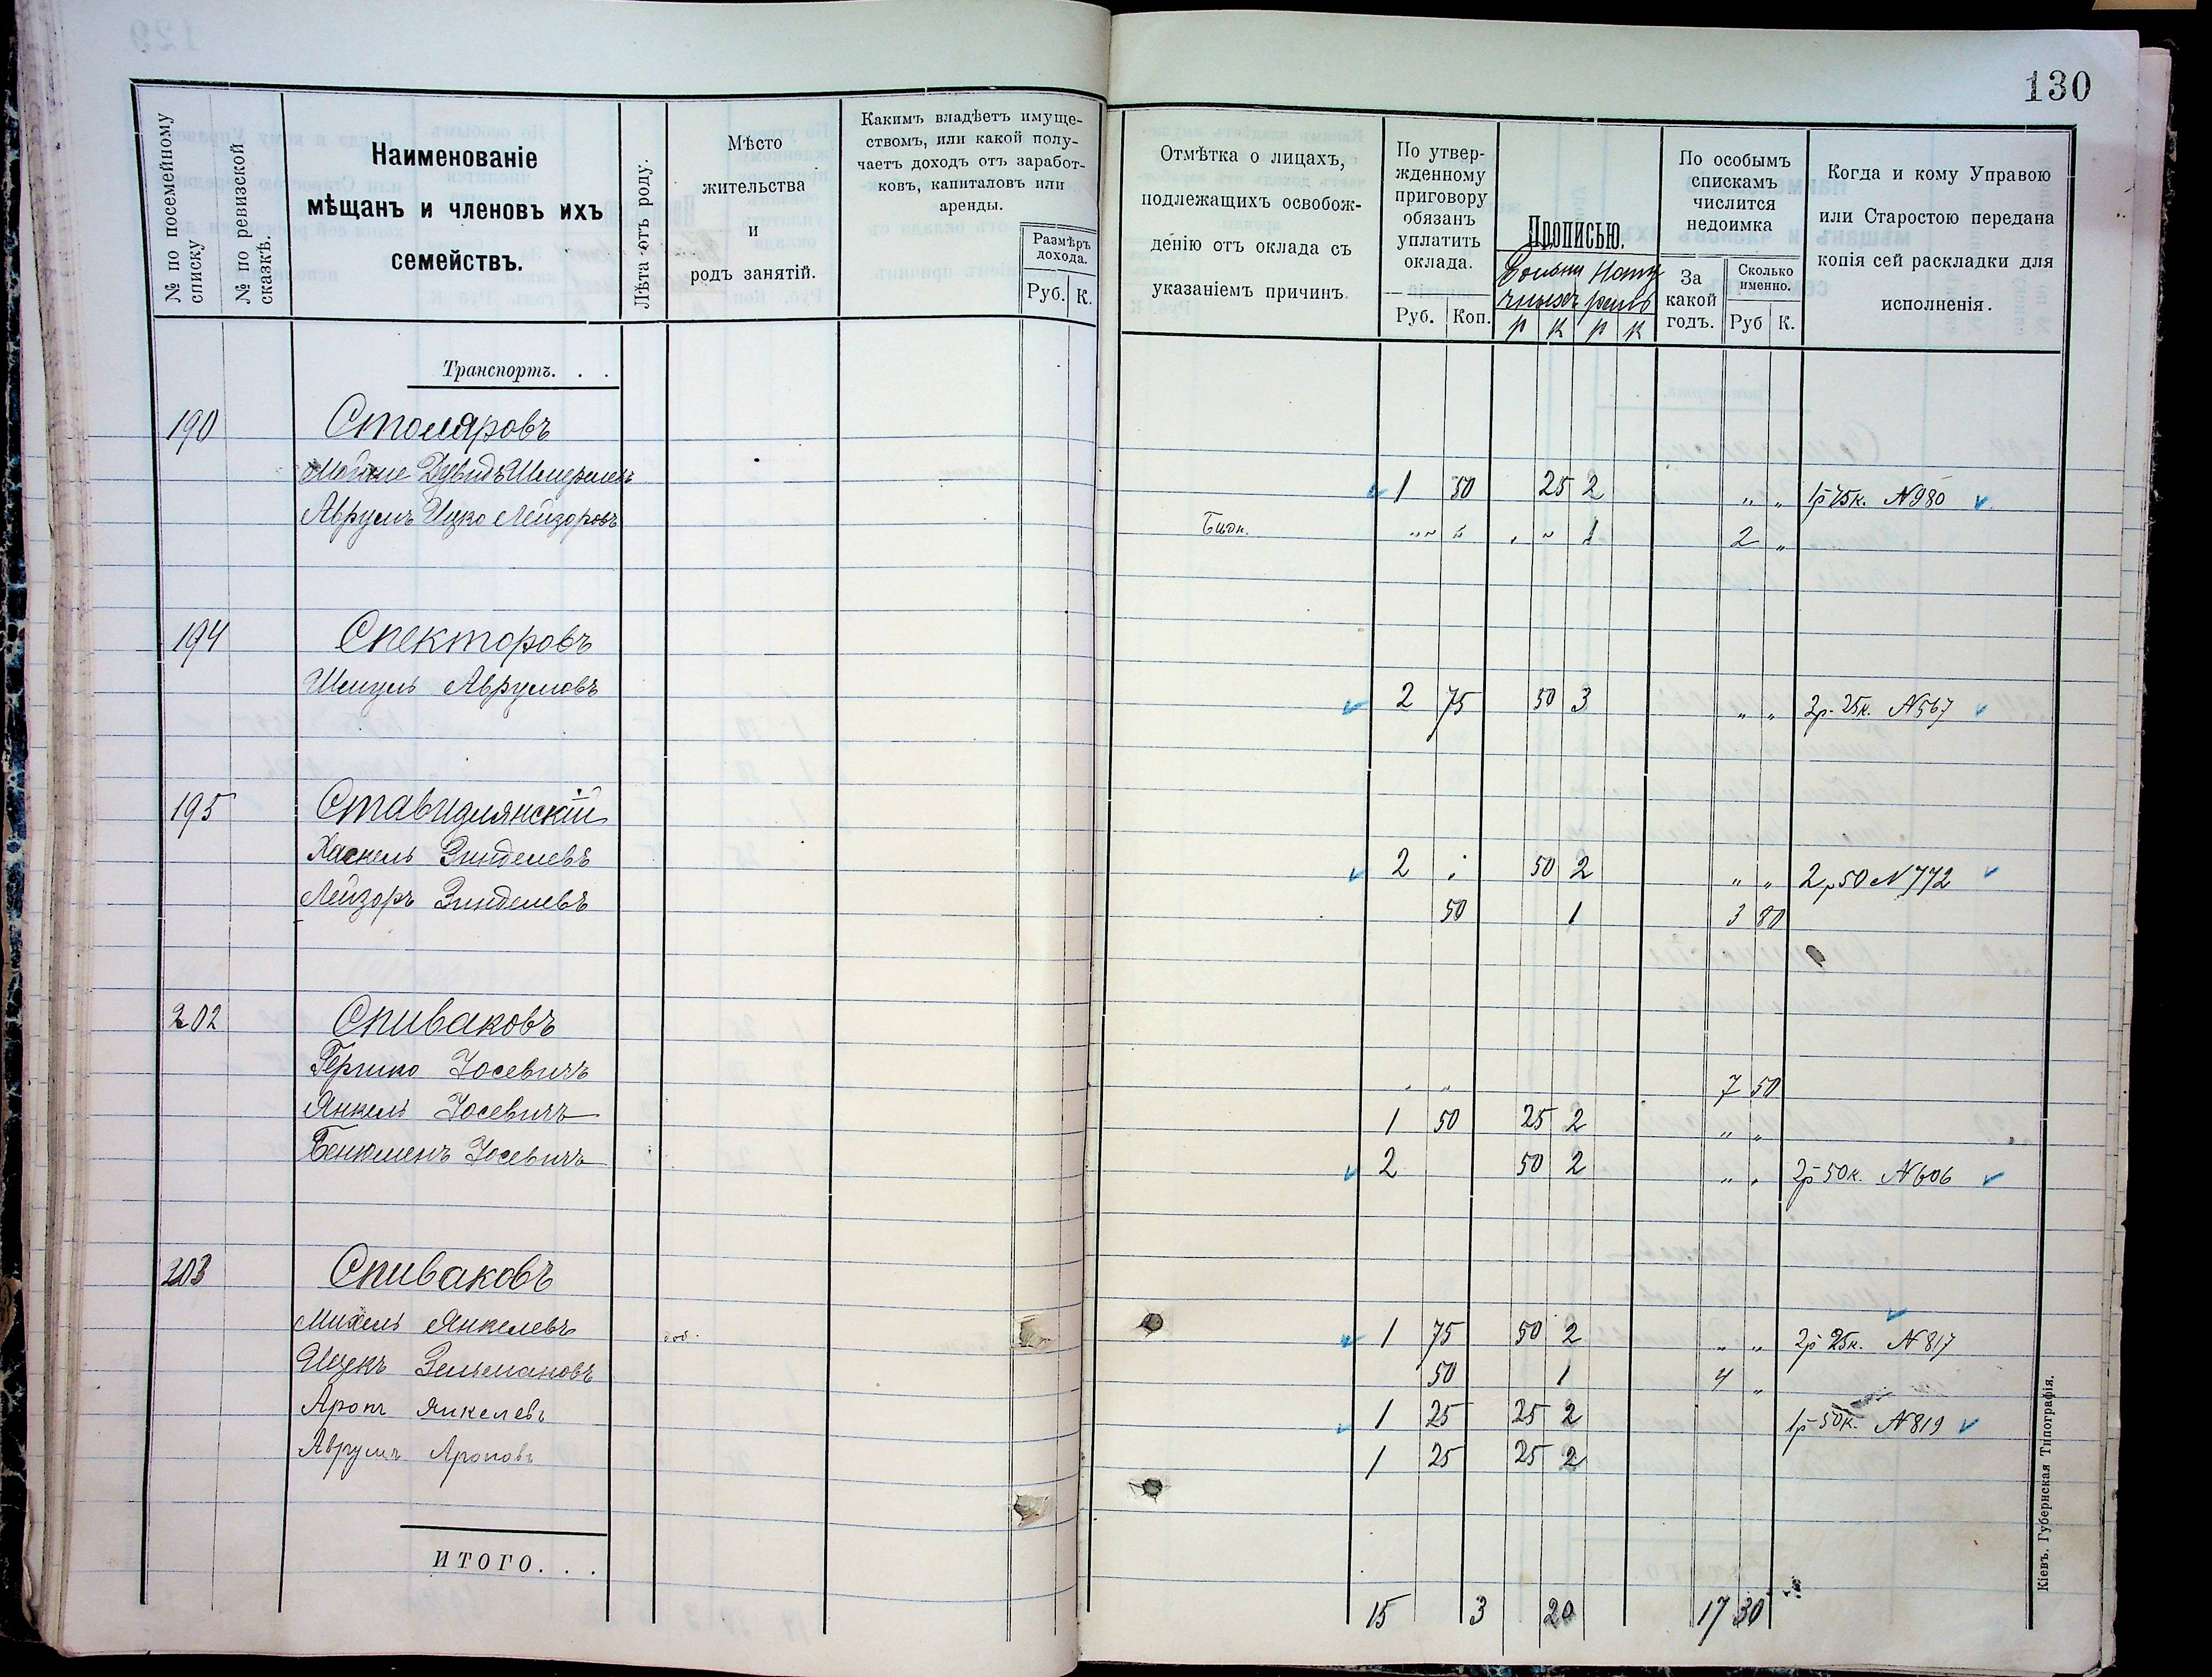 130
№ по посемейному списку
№ по ревизской сказкѣ.
Наименованіе
мѣщанъ и членовъ ихъ
семействъ.
Лѣта отъ роду.
Мѣсто
жительства
и
родъ занятій.
Какимъ владѣетъ имуще-
ствомъ, или какой полу-
чаетъ доходъ отъ заработ-
ковъ, капиталовъ или
аренды.
Размѣръ
дохода.
Руб. К.
Отмѣтка о лицахъ,
подлежащихъ освобож-
денію отъ оклада съ
указаніемъ причинъ.
По утвер-
жденному
приговору
обязанъ
уплатить
оклада.
Руб. Коп.
Прописью.
р к р к
По особымъ
спискамъ
числится
недоимка
За
какой
годъ.
Сколько
именно.
Руб К.
Когда и кому Управою
или Старостою передана
копія сей раскладки для
исполненія.
Транспортъ. . .
190 Столяровъ
Мойше Дувидъ Шмерелевъ 1 50 25 2 „ „ 1р 75к. N 980
Аврумъ Ицко Лейзоровъ „ „ „ „ 1 2 „
194 Спекторовъ
Шмуль Аврумовъ 2 75 50 3 „ „ 3р. 25к. N 567
195 Ставидлянскій
Хаскель Зинделевъ 2 „ 50 2 „ „ 2р 50 N 772
Лейзоръ Зинделевъ 50 1 3 80
202 Спиваковъ
Гершко Іосевичъ „ „ 7 50
Янкель Іосевичъ 1 50 25 2 „ „
Бенюменъ Іосевичъ 2 50 2 „ „ 2р 50к. N 606
203 Спиваковъ
Михель Янкелевъ 1 75 50 2 „ „ 2р 25к. N 817
Ицекъ Зельмановъ 50 1 4 „
Аронъ Янкелевъ 1 25 25 2 1р 50к. N 819
Аврумъ Ароновъ 1 25 25 2
ИТОГО. . .
15 3 20 17 30
Кіевъ. Губернская Типографія.